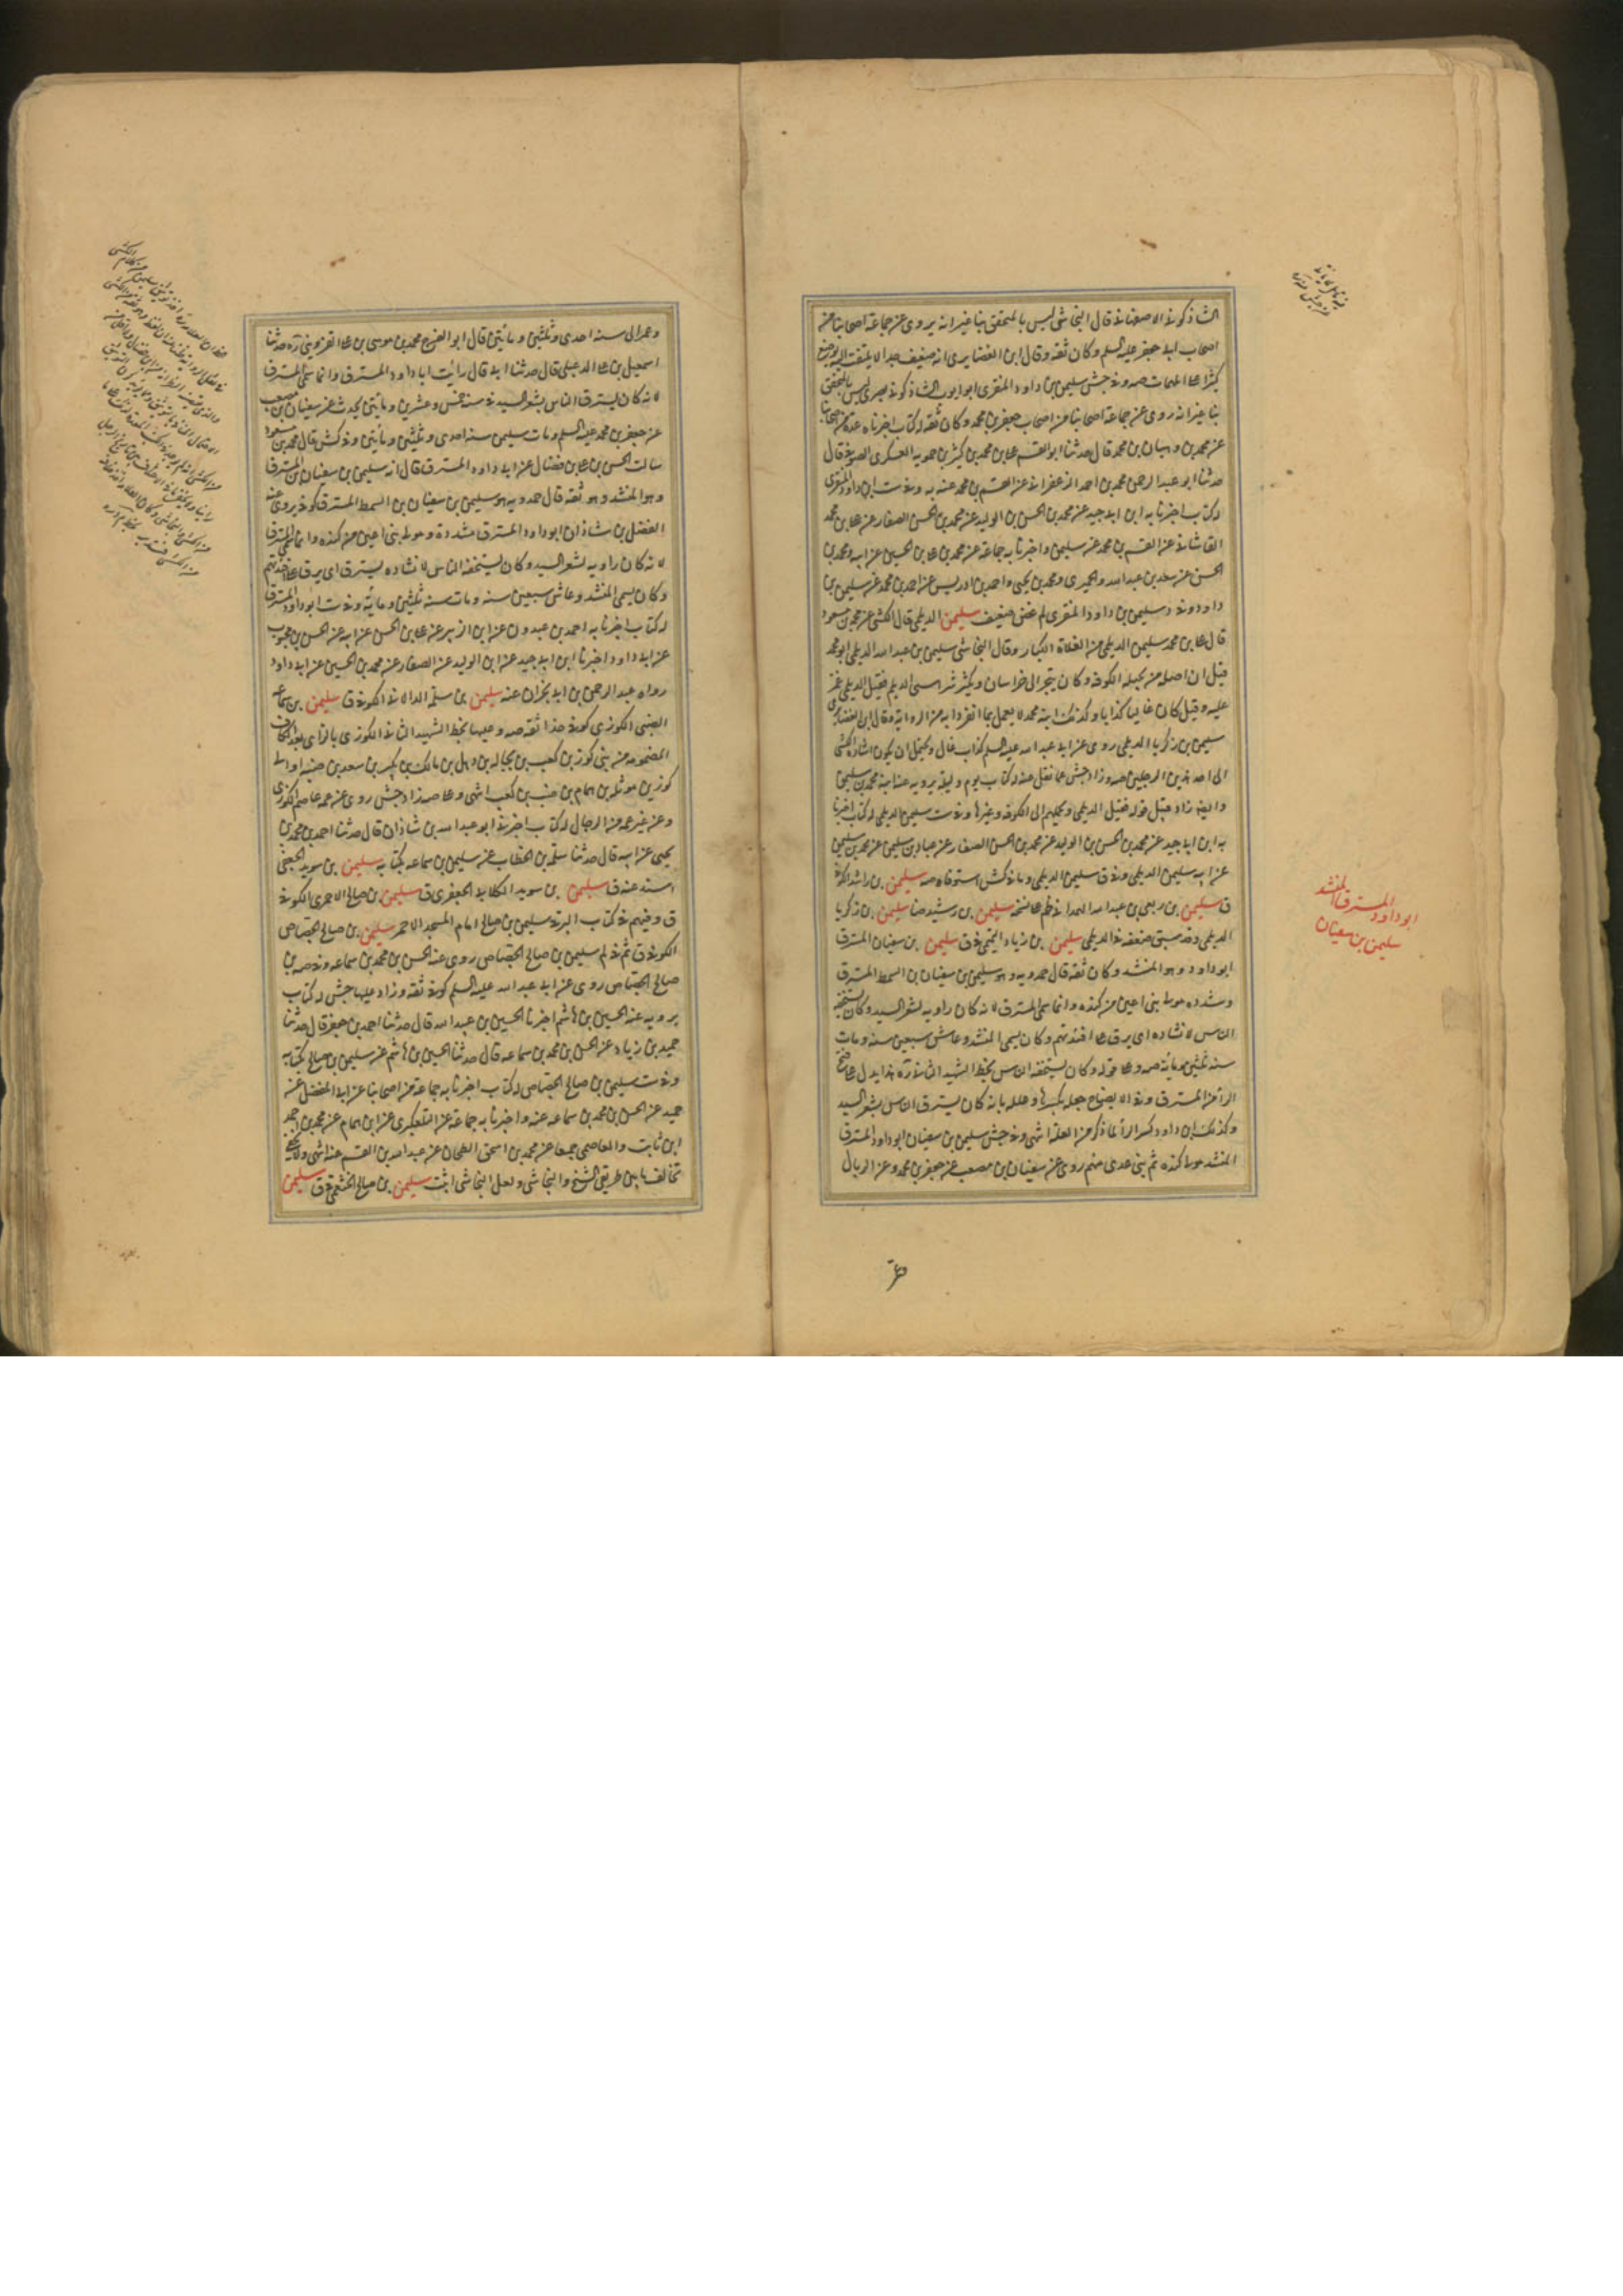 الشاذكونی الاصفهانی قال النجاشی لیس بالمتحقق بنا غیر انه یروی عن جماعة اصحابنا من
اصحاب ابی جعفر علیه السلم وکان ثقة وقال ابن الغضایری انه ضعیف جدا لا یلتفت الیه یوضع
کثیرا علی المهمات صه وفی جش سلیمن بن داود المنقری ابو ایوب الشاذکونی بصری لیس بالمتحقق
بنا غیر انه روی عن جماعة اصحابنا من اصحاب جعفر بن محمد وکان ثقة له کتاب اخبرناه عدة من اصحابنا
عن محمد بن وهبان بن محمد قال حدثنا ابو القسم علی بن محمد بن کثیر بن حمویه العسکری الصوفی قال
حدثنا ابو عبد الرحمن محمد بن احمد الزعفرانی عن القسم بن محمد عنه به وفی ست ابن داود المنقری
له کتاب اخبرنا به ابن ابی جید عن محمد بن الحسن بن الولید عن محمد بن الحسن الصفار عن علی بن محمد
القاشانی عن القسم بن محمد عن سلیمن واخبرنا به جماعة عن محمد بن علی بن الحسین عن ابیه ومحمد بن
الحسن عن سعد بن عبد الله والحمیری ومحمد بن یحیی واحمد بن ادریس عن احمد بن محمد عن سلیمن بن
داود وفی د سلیمن بن داود المنقری لم غض ضعیف سلیمن الدیلمی قال الکشی عن محمد بن مسعود
قال علی بن محمد سلیمن الدیلمی من الغلاة الکبار وقال النجاشی سلیمن بن عبد الله الدیلمی ابو محمد
قیل ان اصله من بجیلة الکوفة وکان یتجر الی خراسان ویکثر شراء سبی الدیلم فقیل الدیلمی غمز
علیه وقیل کان غالیا کذابا وکذلک ابنه محمد لا یعمل بما انفردا به من الروایة وقال ابن الغضایری
سلیمن بن زکریا الدیلمی روی عن ابی عبد الله علیه السلم کذاب غال ویحتمل ان یکون اشارة الکشی
الی احد هذین الرجلین صه وزاد جش علی ما نقل عنه له کتاب یوم ولیلة یرویه عنه ابنه محمد بن سلیمن
وایضا زاد قبل قوله فقیل الدیلمی ویحملهم الی الکوفة وغیرها وفی ست سلیمن الدیلمی له کتاب اخبرنا
به ابن ابی جید عن محمد بن الحسن بن الولید عن محمد بن الحسن الصفار عن عباد بن سلیمن عن محمد بن سلیمن
عن ابیه سلیمن الدیلمی وفی ق سلیمن الدیلمی وما فی کش استوفاه صه سلیمن بن راشد الکوفی
ق سلیمن بن ربعی بن عبد الله الهمدانی ظم علی نسخه سلیمن بن رشید ضا سلیمن بن زکریا
الدیلمی وقد سبق ضعفه فی الدیلمی سلیمن بن زیاد التمیمی ق سلیمن بن سفیان المسترق
ابو داود وهو المنشد وکان ثقة قال حمدویه وهو سلیمن بن سفیان بن السمط المسترق
وشدده مولی بنی اعین من کندة وانما سمی المسترق لانه کان راویة لشعر السید وکان یستخفه
الناس لانشاده ای یرق علی افئدتهم وکان یسمی المنشد وعاش سبعین سنة ومات
سنة ثلثین ومائة صه وعلی قوله وکان یستخفه الناس بخط الشهید الثانی ره هذا یدل علی فتح
الراء من المسترق وفی الایضاح جعله بکسرها وعلله بانه کان یسترق الناس بشعر السید
وکذلک ابن داود کسر الراء لما ذکر من العلة انتهی وفی جش سلیمن بن سفیان ابو داود المسترق
المنشد مولی کندة ثم بنی عدی منهم روی عن سفیان بن مصعب عن جعفر بن محمد وعن الذبال
ابو داود المسترق المنشد
سلیمن بن سفیان
وعمر
وعمر الی سنة احدی وثلثین ومائتین قال ابو الفرج محمد بن موسی بن علی القزوینی ره حدثنا
اسمعیل بن علی الدعبلی قال حدثنا ابی قال رأیت ابا داود المسترق وانما سمی المسترق
لانه کان یسترق الناس بشعر السید فی سنة خمس وعشرین ومائتین یحدث عن سفیان بن مصعب
عن جعفر بن محمد علیه السلم ومات سلیمن سنة احدی وثلثین ومائتین وفی کش قال محمد بن مسعود
سالت الحسن بن علی بن فضال عن ابی داود المسترق قال انه سلیمن بن سفیان المسترق
وهو المنشد وهو ثقة قال حمدویه هو سلیمن بن سفیان بن السمط المسترق کوفی یروی عنه
الفضل بن شاذان ابو داود المسترق مشددة مولی بنی اعین من کندة وانما سمی المسترق
لانه کان راویة لشعر السید وکان یستخفه الناس لانشاده یسترق ای یرق علی افئدتهم
وکان یسمی المنشد وعاش سبعین سنة ومات سنة ثلثین ومائة وفی ست ابو داود المسترق
له کتاب اخبرنا به احمد بن عبدون عن ابن الزبیر عن علی بن الحسن عن ابیه عن الحسن بن محبوب
عن ابی داود اخبرنا ابن ابی جید عن ابن الولید عن الصفار عن محمد بن الحسین عن ابی داود
رواه عبد الرحمن بن ابی نجران عنه سلیمن بن سلمة الدالانی الکوفی ق سلیمن بن سماعة
الضبی الکوزی کوفی حذاء ثقة صه وعلیها بخط الشهید الثانی الکوزی بالزای بعد الکاف
المضمومة من بنی کوز بن کعب بن بجالة بن ذهل بن مالک بن بکر بن سعد بن ضبة او الی
کوز بن موئلة بن همام بن ضب بن کعب انتهی وعلی صه زاد جش روی عن عمه عاصم الکوزی
وعن غیر عمه من الرجال له کتاب اخبرنی ابو عبد الله بن شاذان قال حدثنا احمد بن محمد بن
یحیی عن ابیه قال حدثنا سلمة بن الخطاب عن سلیمن بن سماعة بکتابه سلیمن بن سوید الجعفی
اسند عنه ق سلیمن بن سوید الکلابی الجعفری ق سلیمن بن صالح الاحمری الکوفی
ق وفیهم فی کتاب البرقی سلیمن بن صالح امام المسجد الاحمر سلیمن بن صالح الجصاص
الکوفی ق ثم فی لم سلیمن بن صالح الجصاص روی عنه الحسن بن محمد بن سماعة وفی صه بن
صالح الجصاص روی عن ابی عبد الله علیه السلم کوفی ثقة وزاد علیها جش له کتاب
یرویه عنه الحسین بن هاشم اخبرنا الحسین بن عبید الله قال حدثنا احمد بن جعفر قال حدثنا
حمید بن زیاد عن الحسن بن محمد بن سماعة قال حدثنا الحسین بن هاشم عن سلیمن بن صالح بکتابه
وفی ست سلیمن بن صالح الجصاص له کتاب اخبرنا به جماعة من اصحابنا عن ابی المفضل عن
حمید عن الحسن بن محمد بن سماعة عنه واخبرنا به جماعة عن التلعکبری عن ابن همام عن محمد بن احمد
ابن ثابت والعاصمی جمیعا عن محمد بن اسحق الطحان عن عبد الله بن القسم عنه انتهی ولا یخفی
تخالف ما بین طریق الشیخ والنجاشی ولعل النجاشی اثبت سلیمن بن صالح الخثعمی ق سلیمن